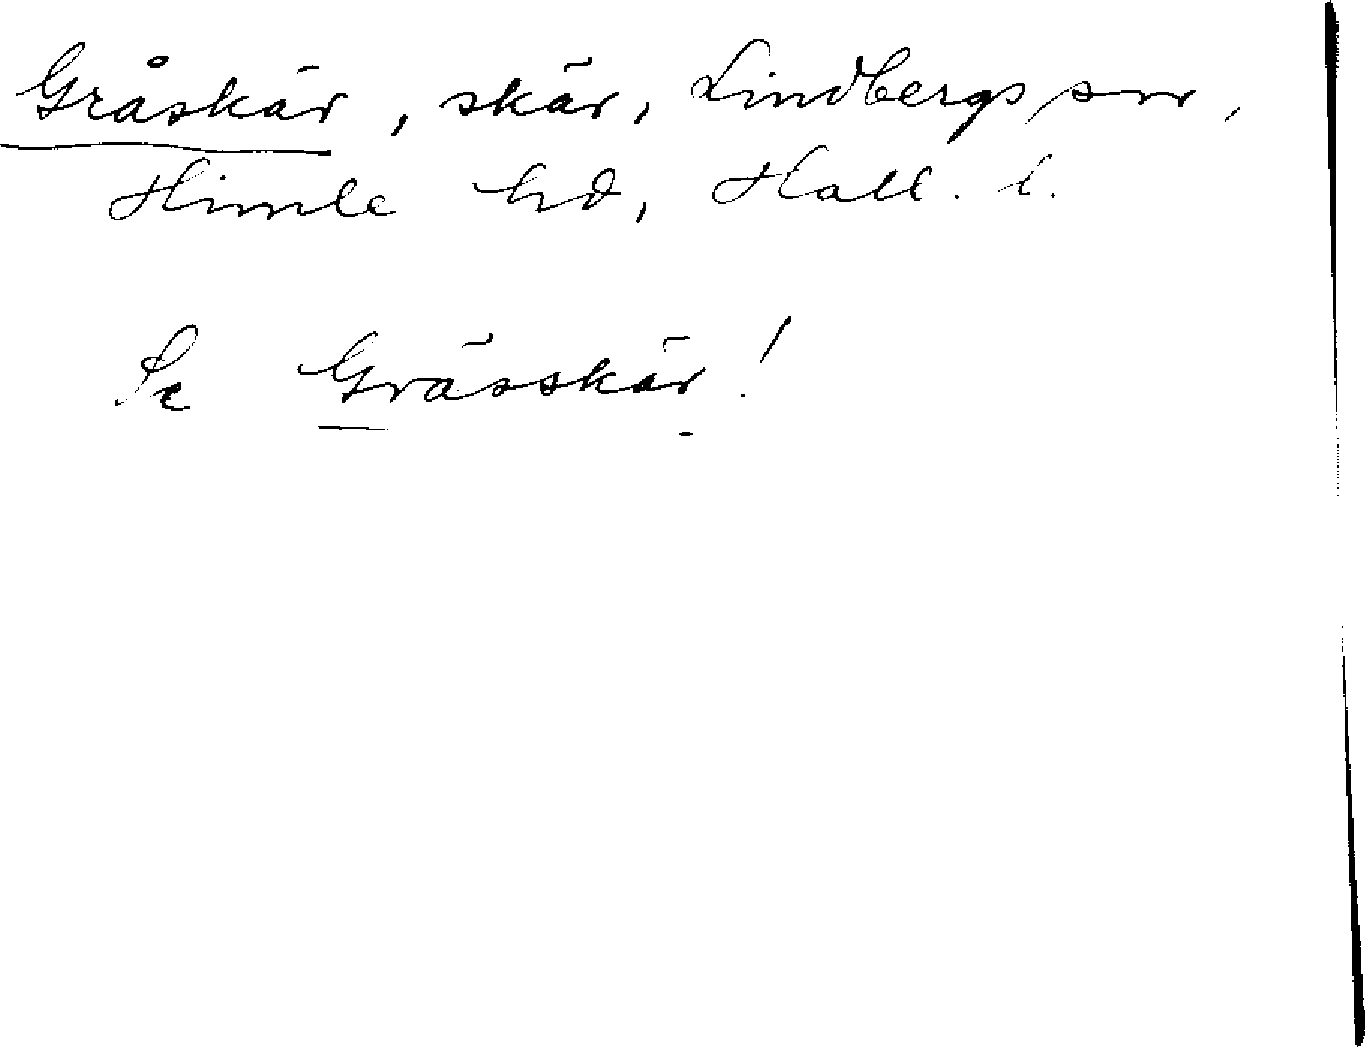 Gråskär, skär, Lindbergs sn,
Himle hd, Hall. l.
Se Grässkär!